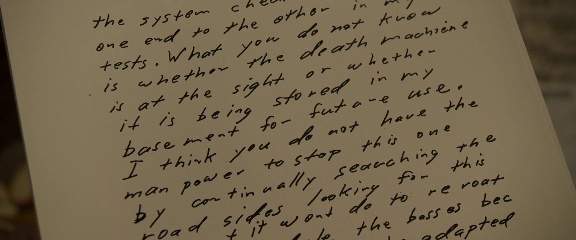 the system chec
one end to the other in my
tests. What you do not know
is whether the death machiene
is at the sight or whether
it is being stored in my
basement for future use.
I think you do not have the
man power to stop this one
by continually searching the
road sides looking for this
it wont do to re roat
the busses bec
adapted